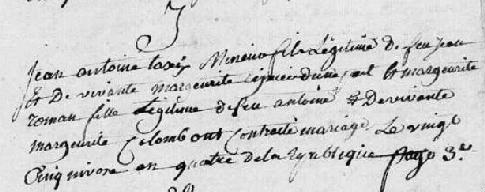 Jean antoine Mineur fils Légitime de feu Jean
Et De vivante marguerite d'une part Et marguerite
roman fille Légitime de feu antoine Et De vivante
marguerite Colomb ont Contracté mariage Le vingt
Cinq nivose an quatre de la République 3.e